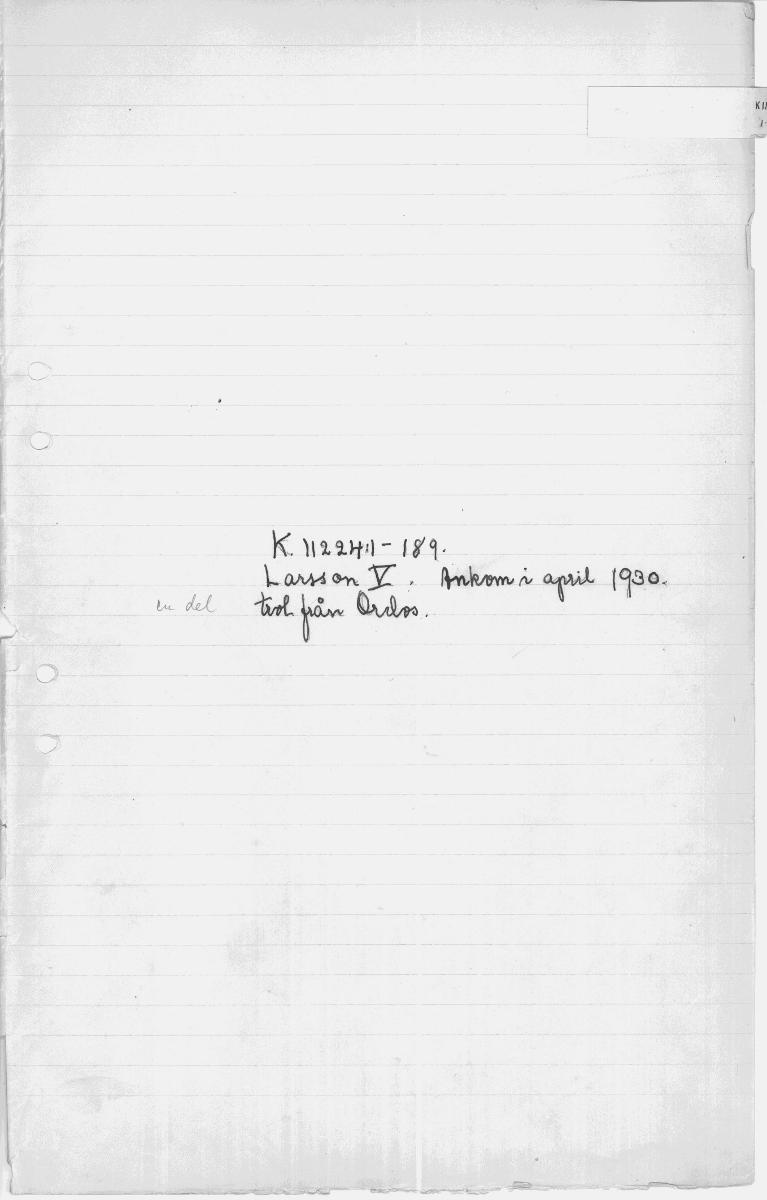 K
K. 11224:1-189.
Larsson V. Ankom i april 1930.
en del trol. från Ordos.